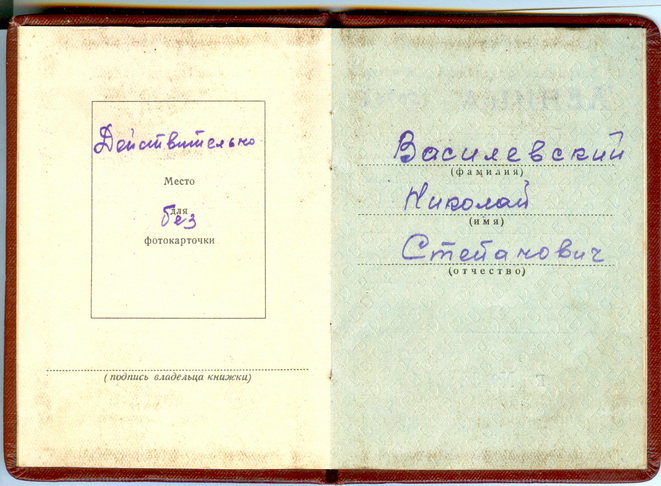 Действительно
Место
для
без
фотокарточки
(подпись владельца книжки)
Василевский
(фамилия)
Николай
(имя)
Степанович
(отчество)